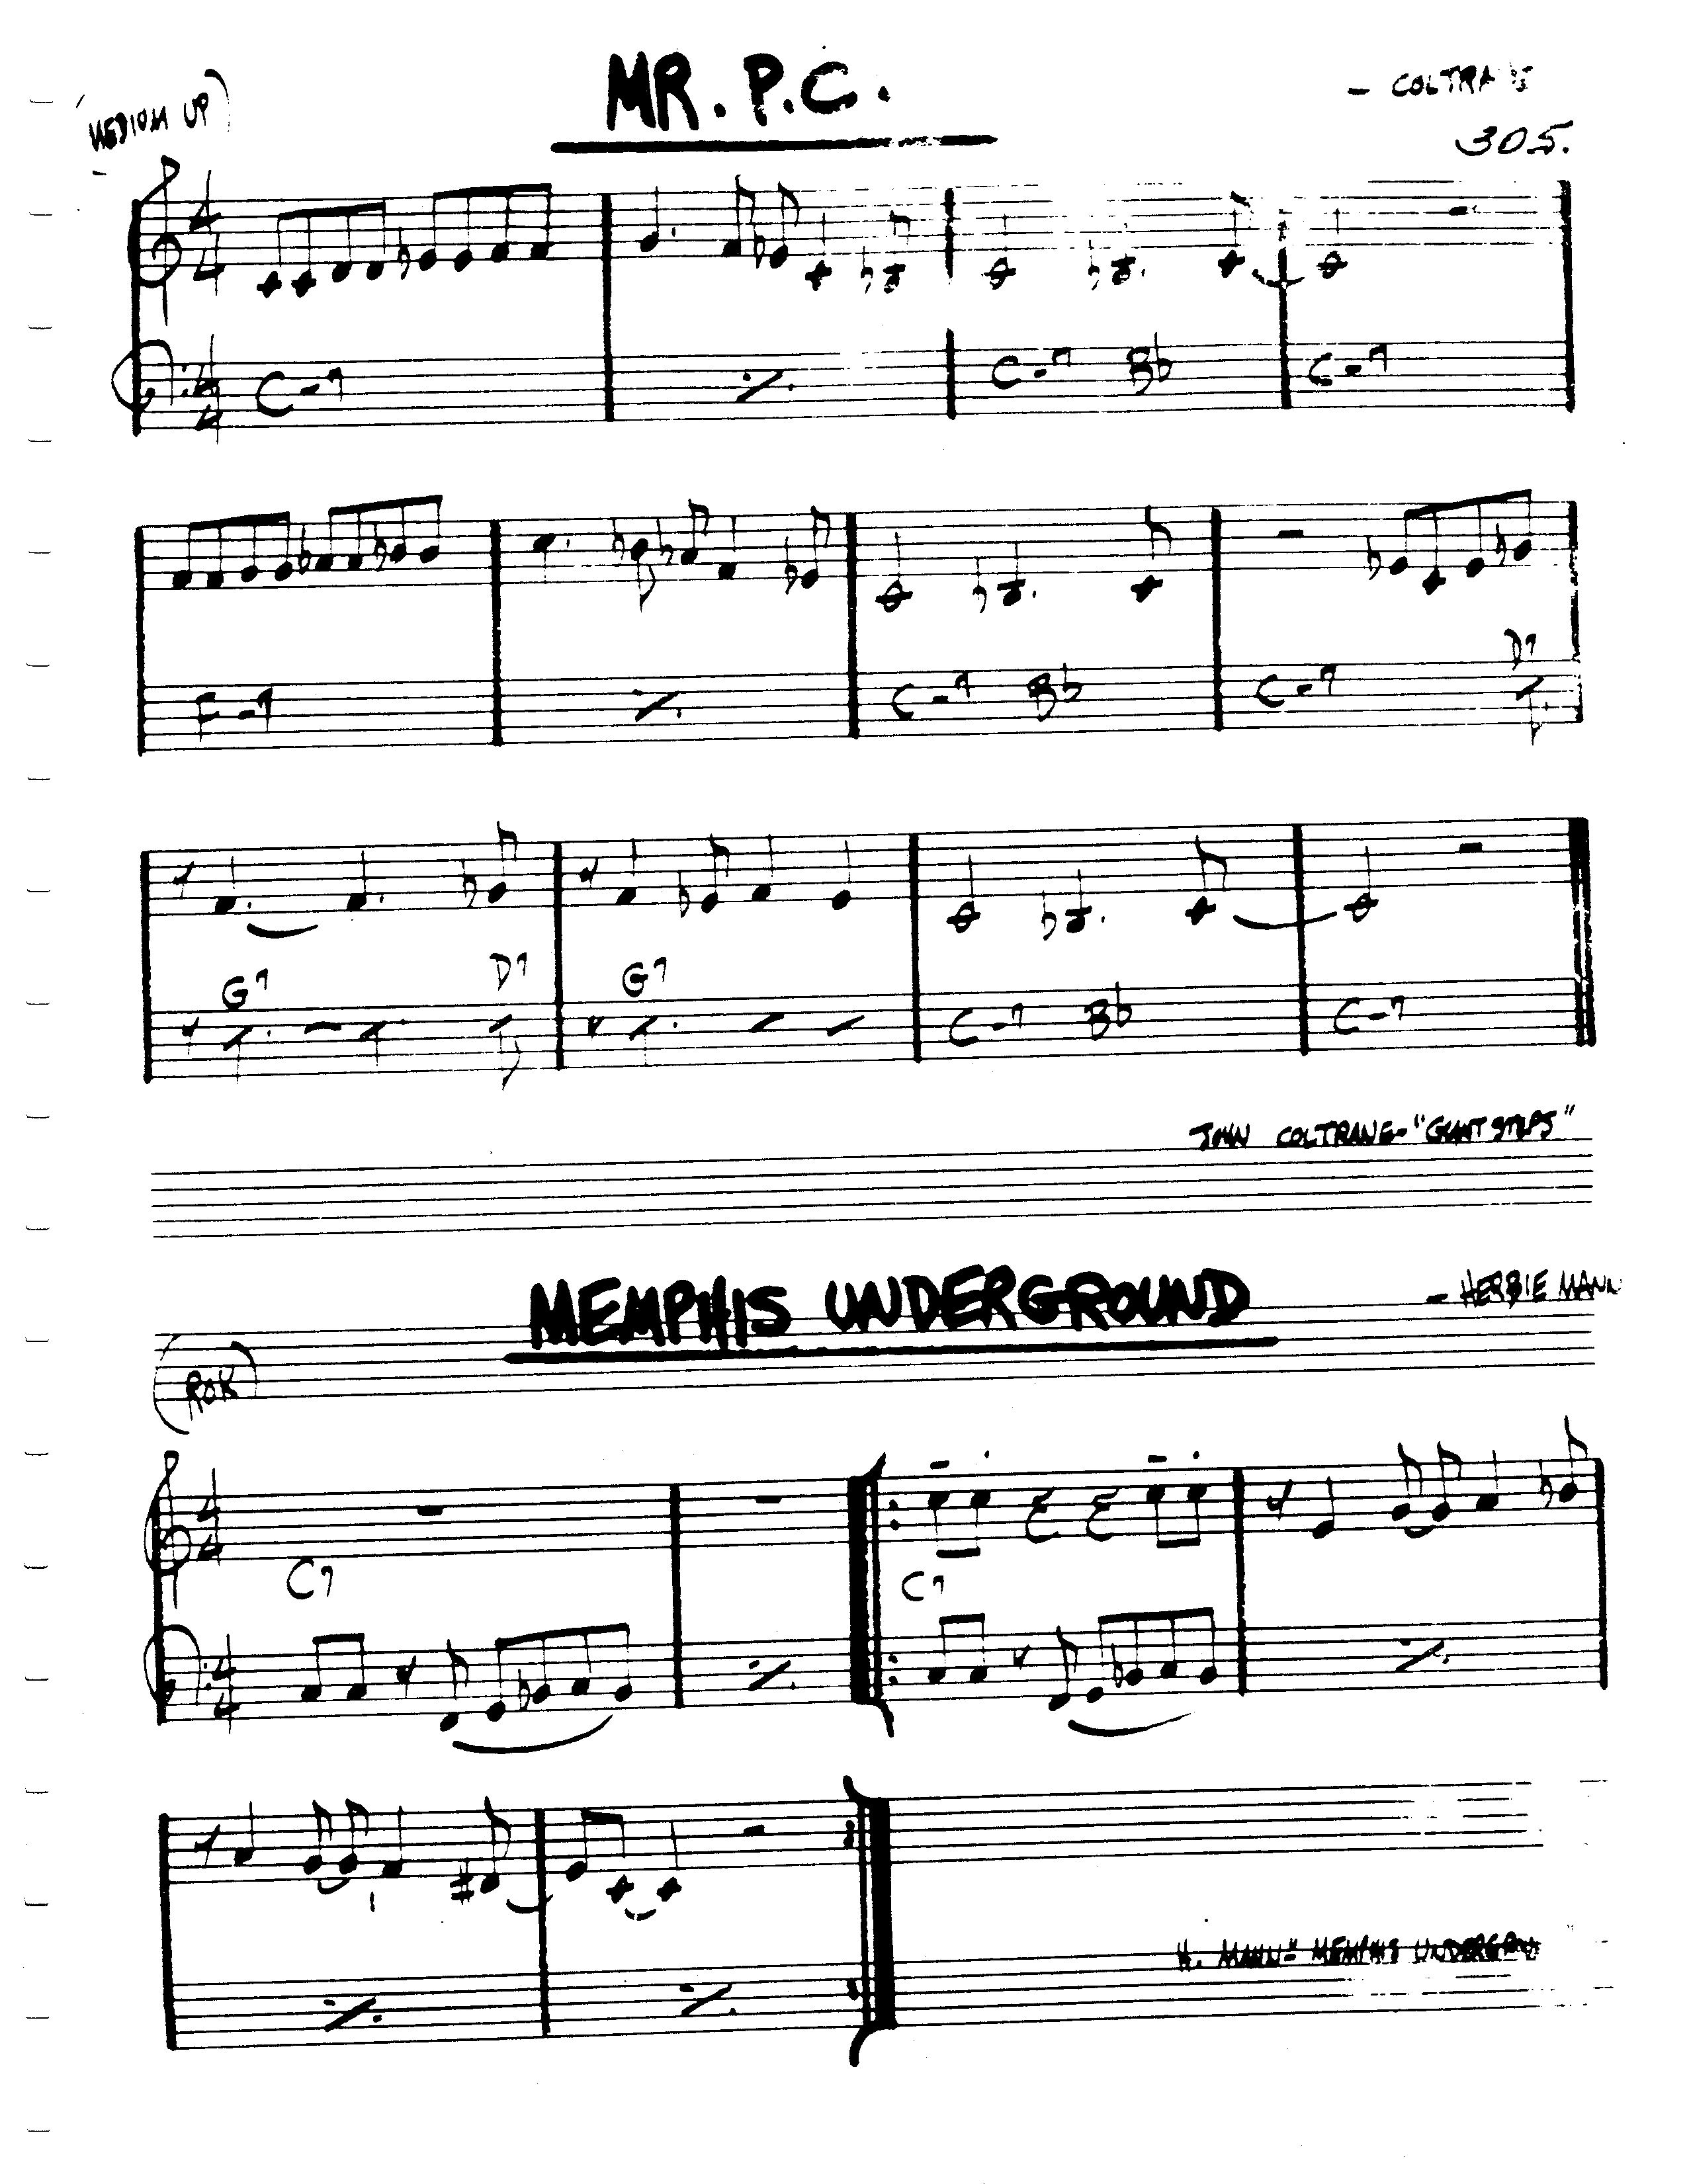 MR. P.C.
(MEDIUM UP)
- COLTRANE
305.
C-7 C-7 Bb C-7
F-7 C-7 Bb C-7 D7
G7 D7 G7 C-7 Bb C-7
JOHN COLTRANE- "GIANT STEPS"
MEMPHIS UNDERGROUND
- HERBIE MANN
(ROK)
C7 C7
H. MANN- "MEMPHIS UNDERGROU